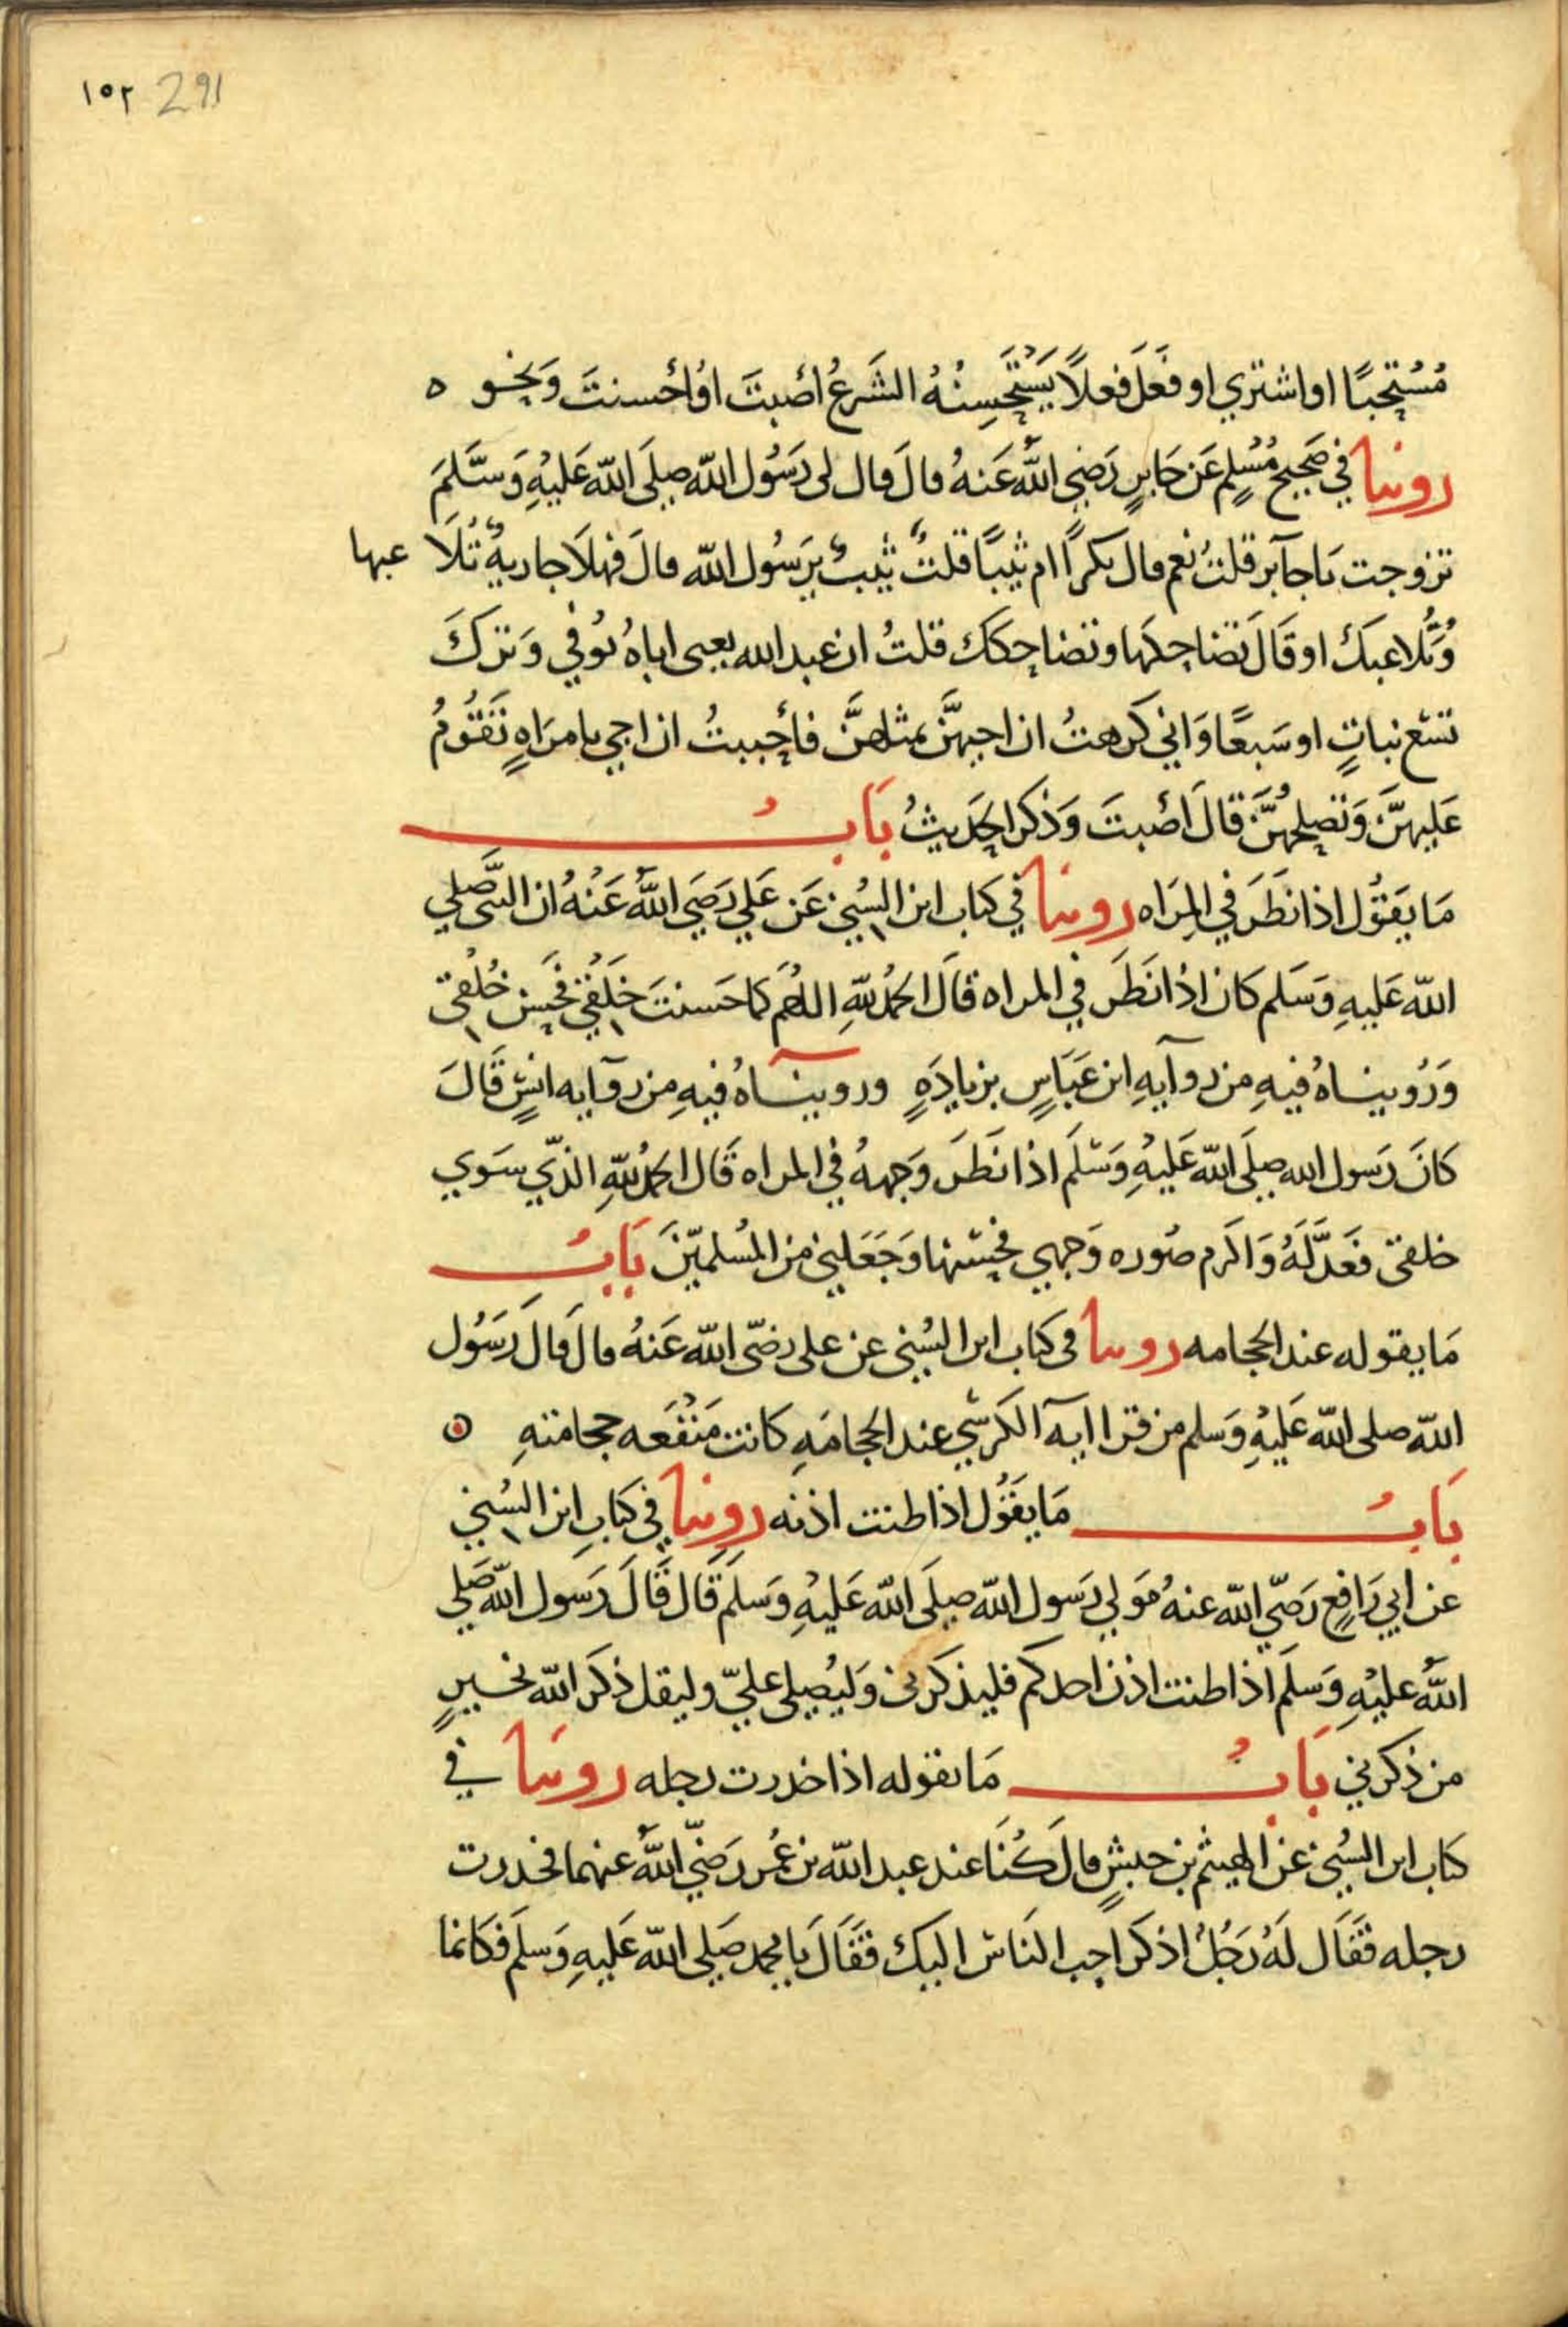 ١٥٢ 291
مُسْتَحِبًا او اشتري او فَعَلَ فعلاً يَسْتَحَسِنُهُ الشَرعُ أصَبتَ اوُ أحُسنتَ وَنحوه
روينا في صَحِيح مُسْلِم عَن جَابرٍ رَضِي اللَّه عَنهُ قالَ قال لى رَسُول اللّه صلَى اللّه عَليْهِ وَسَّلمَ
تزوجت يَا جآبر قلتُ نعم قال بكراً ام ثيبًا قلتُ ثيبٌ يرَسُول اللّه قالَ فهلاَ جاريةً تُلاَعبها
وُتُلاعبَكْ او قَالَ تَضاحِكهَا وتضاحِكك قلتُ ان عبد الله يعنى اباهُ توُفي وَترَكَ
تسْع بَناتٍ او سَبعًا وَاني كَرهتُ ان اجيهَنَّ بمثلهنَّ فأحْببتُ ان اجي بامرَاهٍ تَقُومُ
عَليهنَّ وَتصلِحُهنَّ قالَ أصَبتَ وَذكر الحَديثُ بَابُ
مَا يقُول اذا نظَرَ في المِرَاه روينا في كتاب ابن السُني عَن عَلي رَضيَ اللَّهُ عَنْهُ ان النبَّى صَلي
اللّه عَليهِ وَسَلم كان اذُا نَظَرَ في المراه قَالَ الحمْدُ للّهِ اللهُم كما حَسنتَ خَلقي فحَسِن خُلُقى
وَرُوينَاهُ فيهِ من روآيهِ ابن عَبَاسٍ بزيادَهٍ وروينآاهُ فيهِ مِن روآيه انسٍ قَالَ
كانَ رَسول الله صلَى اللّه عَليْهِ وَسَّلَم اذا نظَرَ وَجههُ في المراه قَال الحمْدُ للّهِ الذّي سَوي
خلقى فعَدَّلَهُ وَاكَرم صُوره وَجهي فحَسّنها وَجَعَلني من المُسلميّنَ بَابُ
مَا يقوله عند الحجامه روينا في كتاب ابن السُني عن على رضّي اللّه عَنهُ قالَ قالَ رَسُول
اللّه صلى اللّه عَليْهِ وَسلم من قرا ايه الكرسّي عند الحجامَهِ كانت مَنْفَعه حجامتهِ ه
بَابُ مَا يقُول اذا طنت اذنه روينا في كتابِ ابن السُني
عن ابي رَافِع رَضّي اللّه عنهُ مَولي رَسول اللّه صلَى اللّه عَليْهِ وَسلمَ قَال قَالَ رَسول اللّه صَلي
اللَّهُ عليْهِ وَسلَم اذا طنت اذن احدكم فليذكرنى وَليُصلى عليّ وليقل ذكَر اللّه بخيرٍ
من ذكرني بَابُ مَا يقوله اذا خدرت رجله روينَا في
كتاب ابن السُني عن الهيثم بن حبشٍ قالَ كُنَا عند عبد اللّه بن عُمر رَضّي اللَّهُ عنهما فخدرت
رجله فقَال لَهُ رَجُلُ اذكر احِب النَاسْ اليكْ فقَالَ يا محمد صَلى اللّه عَليهِ وَسلم فكانما